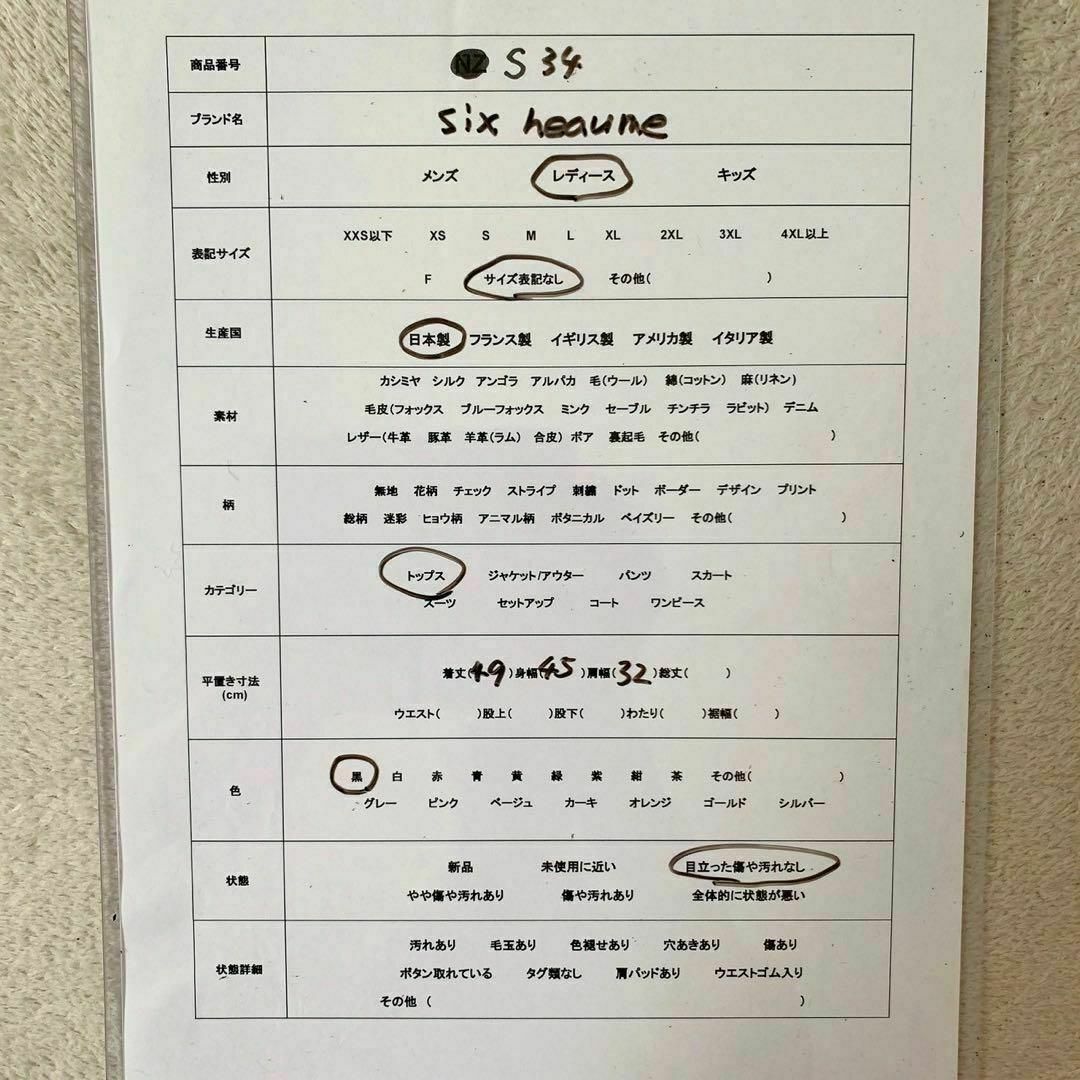 商品番号 NZ S 34
ブランド名 six heaume
性別 メンズ レディース キッズ
表記サイズ XXS以下 XS S M L XL 2XL 3XL 4XL以上
F サイズ表記なし その他( )
生産国 日本製 フランス製 イギリス製 アメリカ製 イタリア製
カシミヤ シルク アンゴラ アルパカ 毛(ウール) 綿(コットン) 麻(リネン)
素材 毛皮(フォックス ブルーフォックス ミンク セーブル チンチラ ラビット) デニム
レザー(牛革 豚革 羊革(ラム) 合皮) ボア 裏起毛 その他( )
柄 無地 花柄 チェック ストライプ 刺繍 ドット ボーダー デザイン プリント
総柄 迷彩 ヒョウ柄 アニマル柄 ボタニカル ペイズリー その他( )
カテゴリー トップス ジャケット/アウター パンツ スカート
スーツ セットアップ コート ワンピース
平置き寸法 着丈(49)身幅(45)肩幅(32)総丈( )
(cm) ウエスト( )股上( )股下( )わたり( )裾幅( )
色 黒 白 赤 青 黄 緑 紫 紺 茶 その他( )
グレー ピンク ベージュ カーキ オレンジ ゴールド シルバー
状態 新品 未使用に近い 目立った傷や汚れなし
やや傷や汚れあり 傷や汚れあり 全体的に状態が悪い
汚れあり 毛玉あり 色褪せあり 穴あきあり 傷あり
状態詳細 ボタン取れている タグ類なし 肩パッドあり ウエストゴム入り
その他 ( )